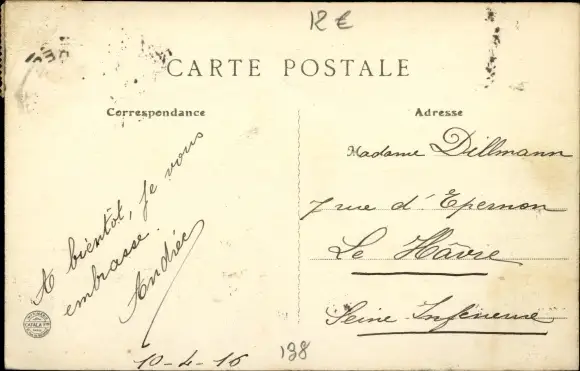 12 €
CARTE POSTALE
Correspondance
Adresse
A bientôt, je vous
embrasse.
Andrée
10-4-16
Madame Dillmann
7 rue d'Epernon
Le Hâvre
Seine Inférieure
138
CATALA